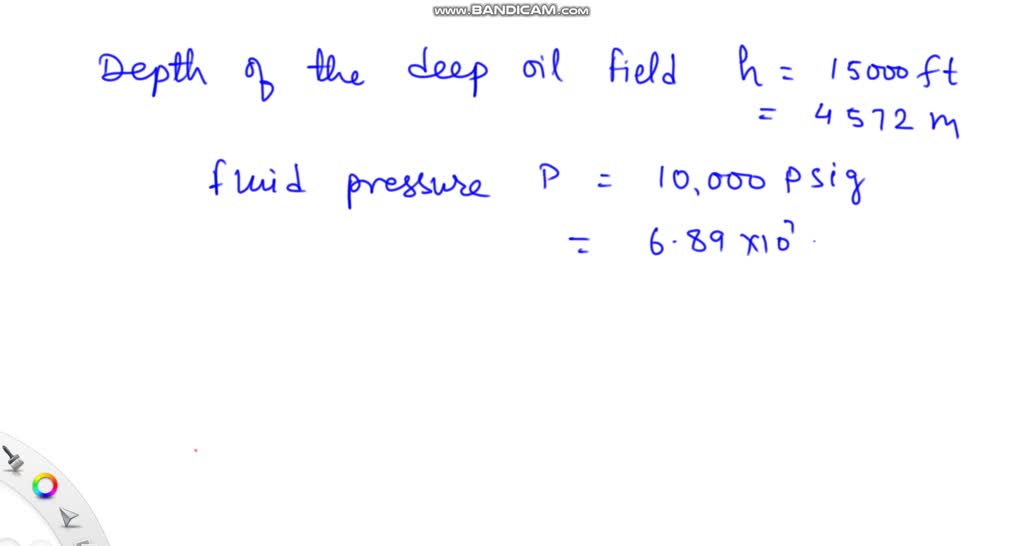 www.BANDICAM.com
Depth of the deep oil field h = 15000 ft
= 4572 m
fluid pressure P = 10,000 psig
= 6.89 x10⁷